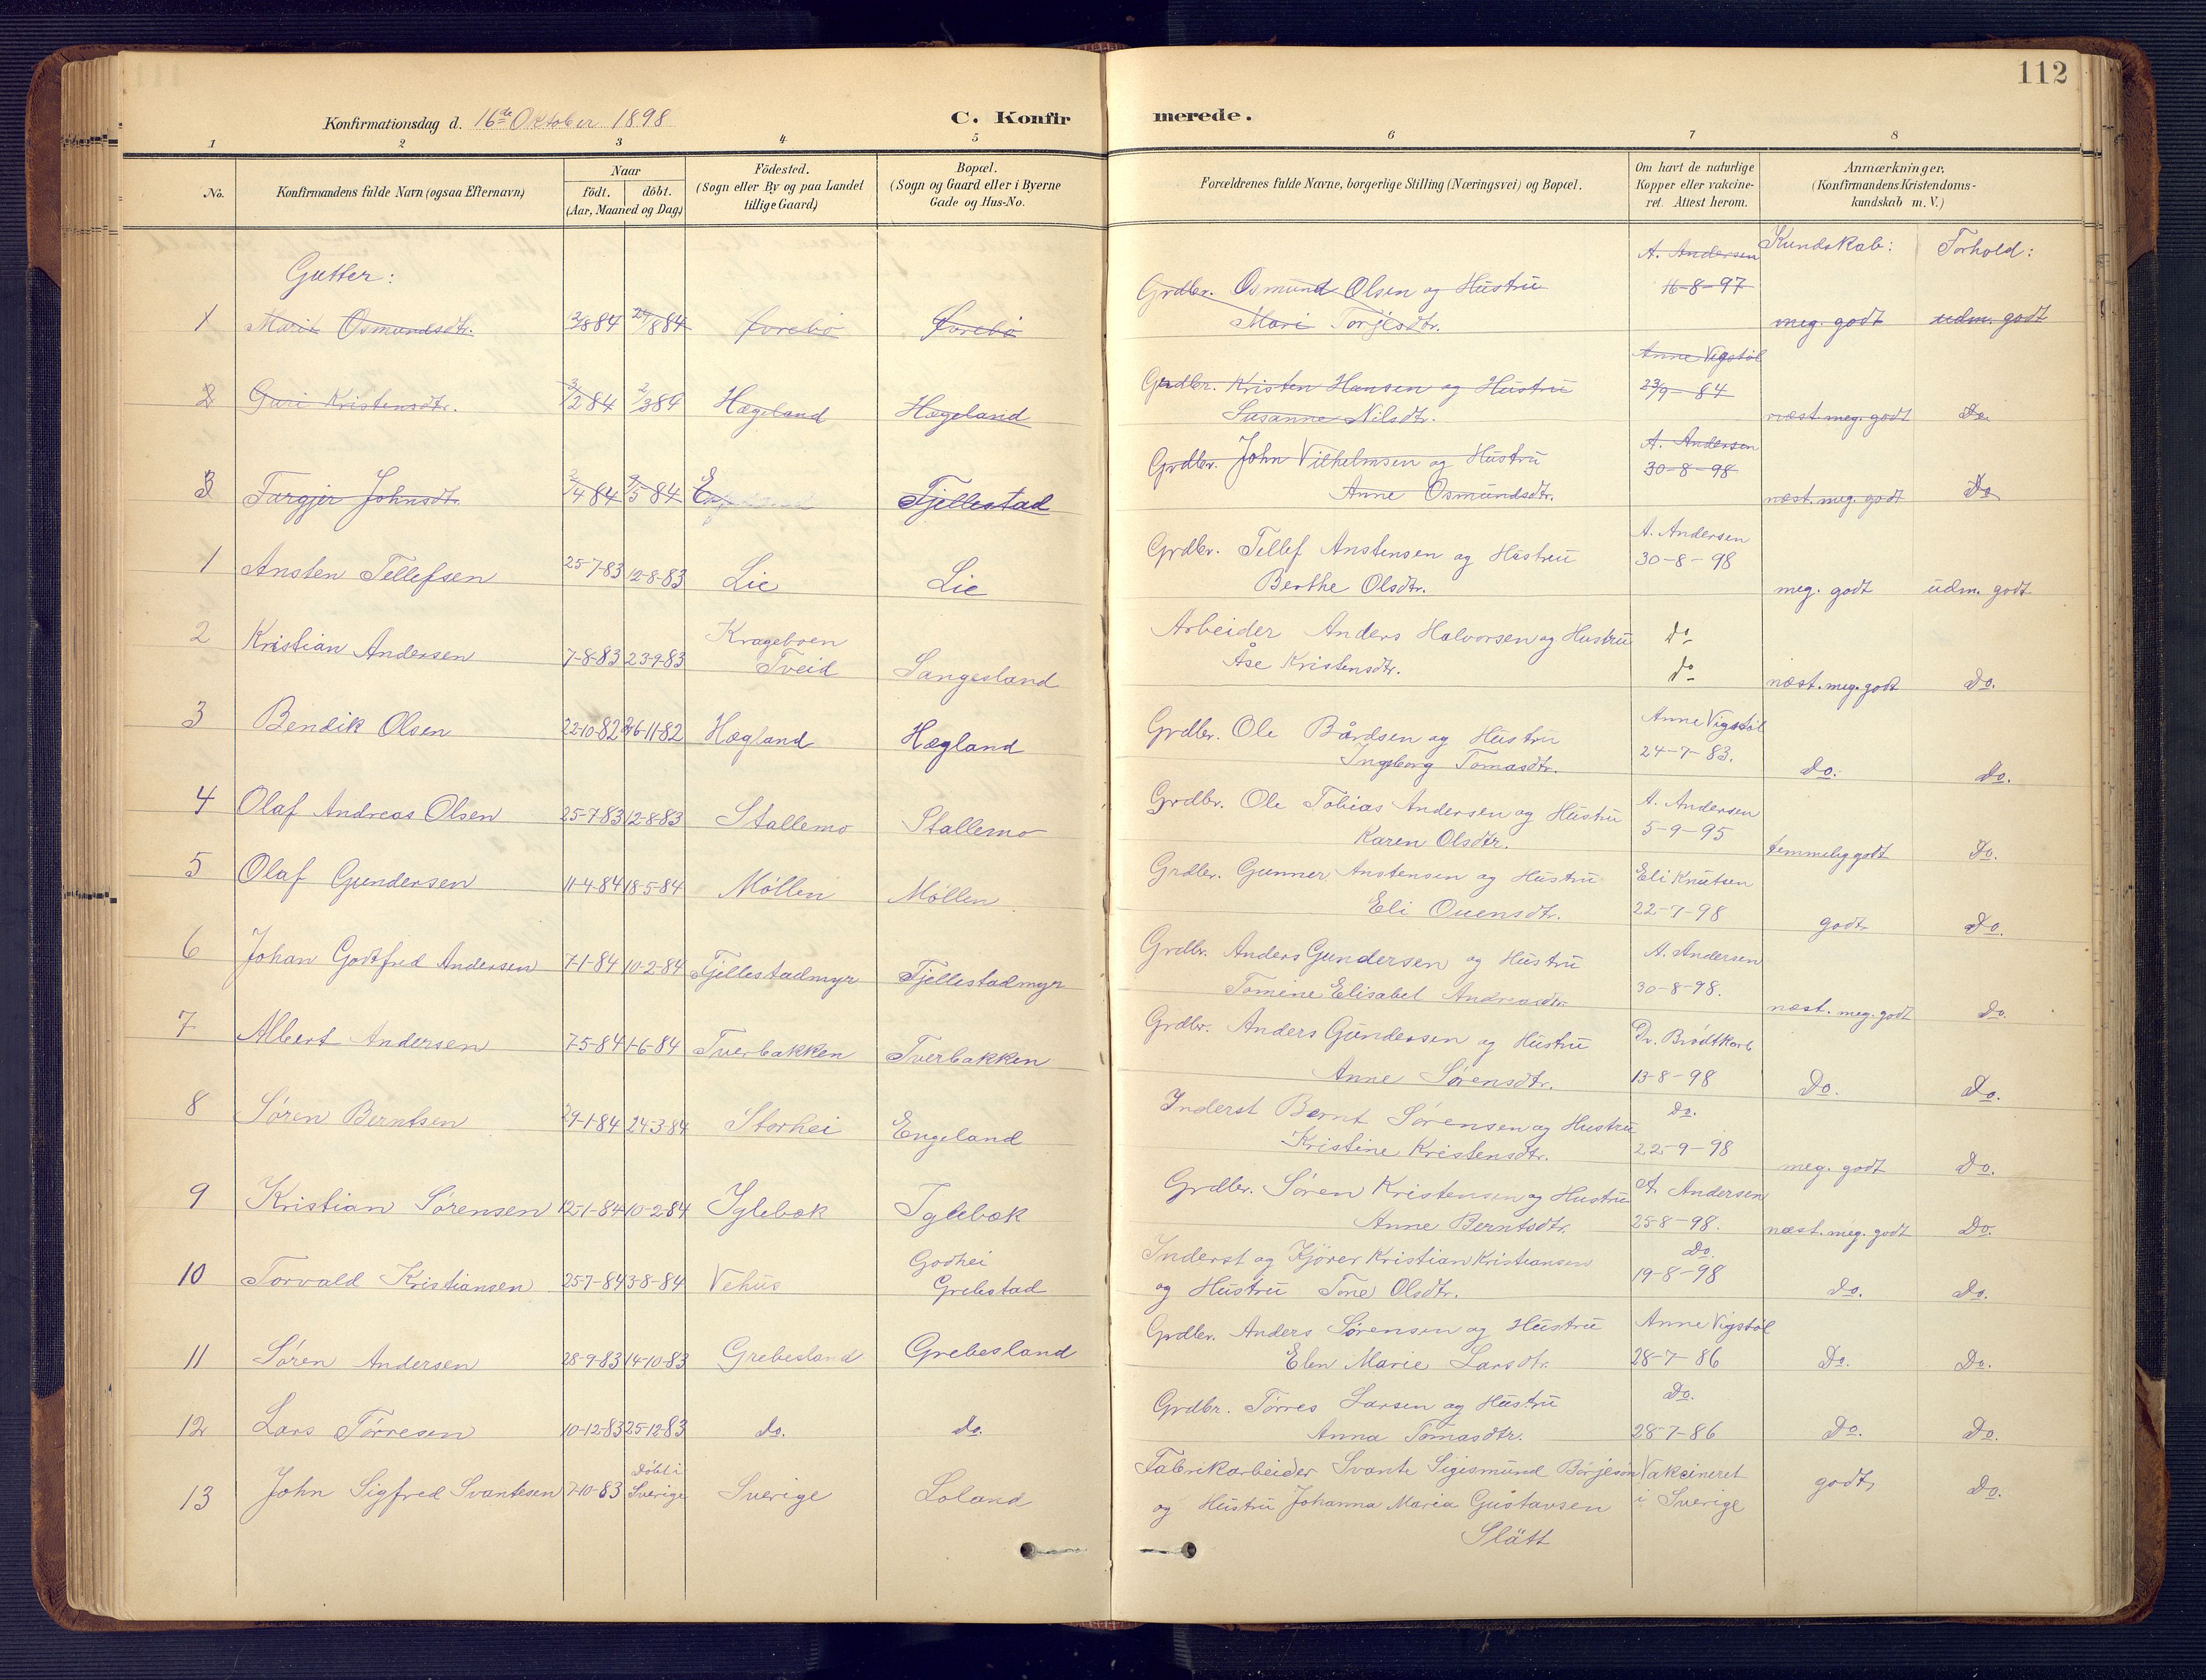 112
Konfirmationsdag d. 16de Oktober 1898 C. Konfir merede.
1 2 3 4 5 6 7 8
No. Konfirmandens fulde Navn (ogsaa Efternavn) Naar födt. döbt. (Aar, Maaned og Dag) Födested. (Sogn eller By og paa Landet tillige Gaard) Bopæl. (Sogn og Gaard eller i Byerne Gade og Hus-No. Forældrenes fulde Navne, borgerlige Stilling (Næringsvei) og Bopæl. Om havt de naturlige Kopper eller vakcineret. Attest herom. Anmærkninger, (Konfirmandens Kristendomskundskab m. V.)
Gutter: Kundskab: Forhold:
1 Mari Osmundsdtr. 2/8 84 24/8 84 Grdbr. Osmund Olsen og Hustru A. Andersen
Mari Torjesdtr. 16-8-97 meg. godt udm. godt
2 Guri Kristensdtr. 3/2 84 2/3 84 Hægeland Hægeland Grdbr. Kristen Hansen og Hustru Anne Vigstøl
Susanne Nilsdtr. 23/9-84 næst meg. godt Do.
3 Targjer Johnsdtr. 2/4 84 /5 84 Fjellestad Grdbr. John Vilhelmsen og Hustru A. Andersen
Anne Osmundsdtr. 30-8-98 næst. meg. godt Do
1 Ansten Tellefsen 25-7-83 12-8-83 Lie Lie Grdbr. Tellef Anstensen og Hustru A. Andersen
Berthe Olsdtr. 30-8-98 meg. godt udm. godt
2 Kristian Andersen 7-8-83 23-9-83 Krageboen Tveid Sangesland Arbeider Anders Halvorsen og Hustru do
Åse Kristensdtr. do næst. meg. godt Do.
3 Bendik Olsen 22-10-82 26-11-82 Hægland Hægland Grdbr. Ole Bårdsen og Hustru Anne Vigstøl
Ingeborg Tomasdtr. 24-7-83. Do. Do.
4 Olaf Andreas Olsen 25-7-83 12-8-83 Stallemo Stallemo Grdbr. Ole Tobias Andersen og Hustru A. Andersen
Karen Olsdtr. 5-9-95 temmelig godt Do.
5 Olaf Gundersen 11-4-84 18-5-84 Möllen Möllen Grdbr. Gunner Anstensen og Hustru Eli Knutsen
Eli Ouensdtr. 22-7-98 godt Do.
6 Johan Godtfred Andersen 7-1-84 10-2-84 Fjellestadmyr Fjellestadmyr Grdbr. Anders Gundersen og Hustru A. Andersen
Tomine Elisabet Andreasdtr. 30-8-98. næst. meg. godt Do.
7 Albert Andersen 7-5-84 1-6-84 Tverbakken Tverbakken Grdbr. Anders Gundersen og Hustru Dr. Brødtkorb
Anne Sørensdtr. 13-8-98 Do. Do.
8 Søren Berntsen 29-1-84 24-3-84 Storhei Engeland Inderst Bernt Sørensen og Hustru Do.
Kristine Kristensdtr. 22-9-98 meg. godt Do.
9 Kristian Sørensen 12-1-84 10-2-84 Iglebæk Iglebæk Grdbr. Søren Kristensen og Hustru A. Andersen
Anne Berntsdtr. 25-8-98. næst. meg. godt Do.
10 Torvald Kristiansen 25-7-84 3-8-84 Vehus Godhei Grebstad Inderst og Kjörer Kristian Kristiansen Do.
og Hustru Tone Olsdtr. 19-8-98 Do. Do.
11 Søren Andersen 28-9-83 14-10-83 Grebesland Grebesland Grdbr. Anders Sørensen og Hustru Anne Vigstøl
Elen Marie Larsdtr. 28-7-86 Do. Do.
12 Lars Tørresen 10-12-83 25-12-83 do. do. Grdbr. Tørres Larsen og Hustru Do.
Anna Tomasdtr. 28-7-86 Do. Do.
13 John Sigfred Svantesen 7-10-83 Döbt i Sverige Sverige Loland Fabrikarbeider Svante Sigismund Börjeson Vakcineret
og Hustru Johanna Maria Gustavsen i Sverige godt, Do.
Slätt